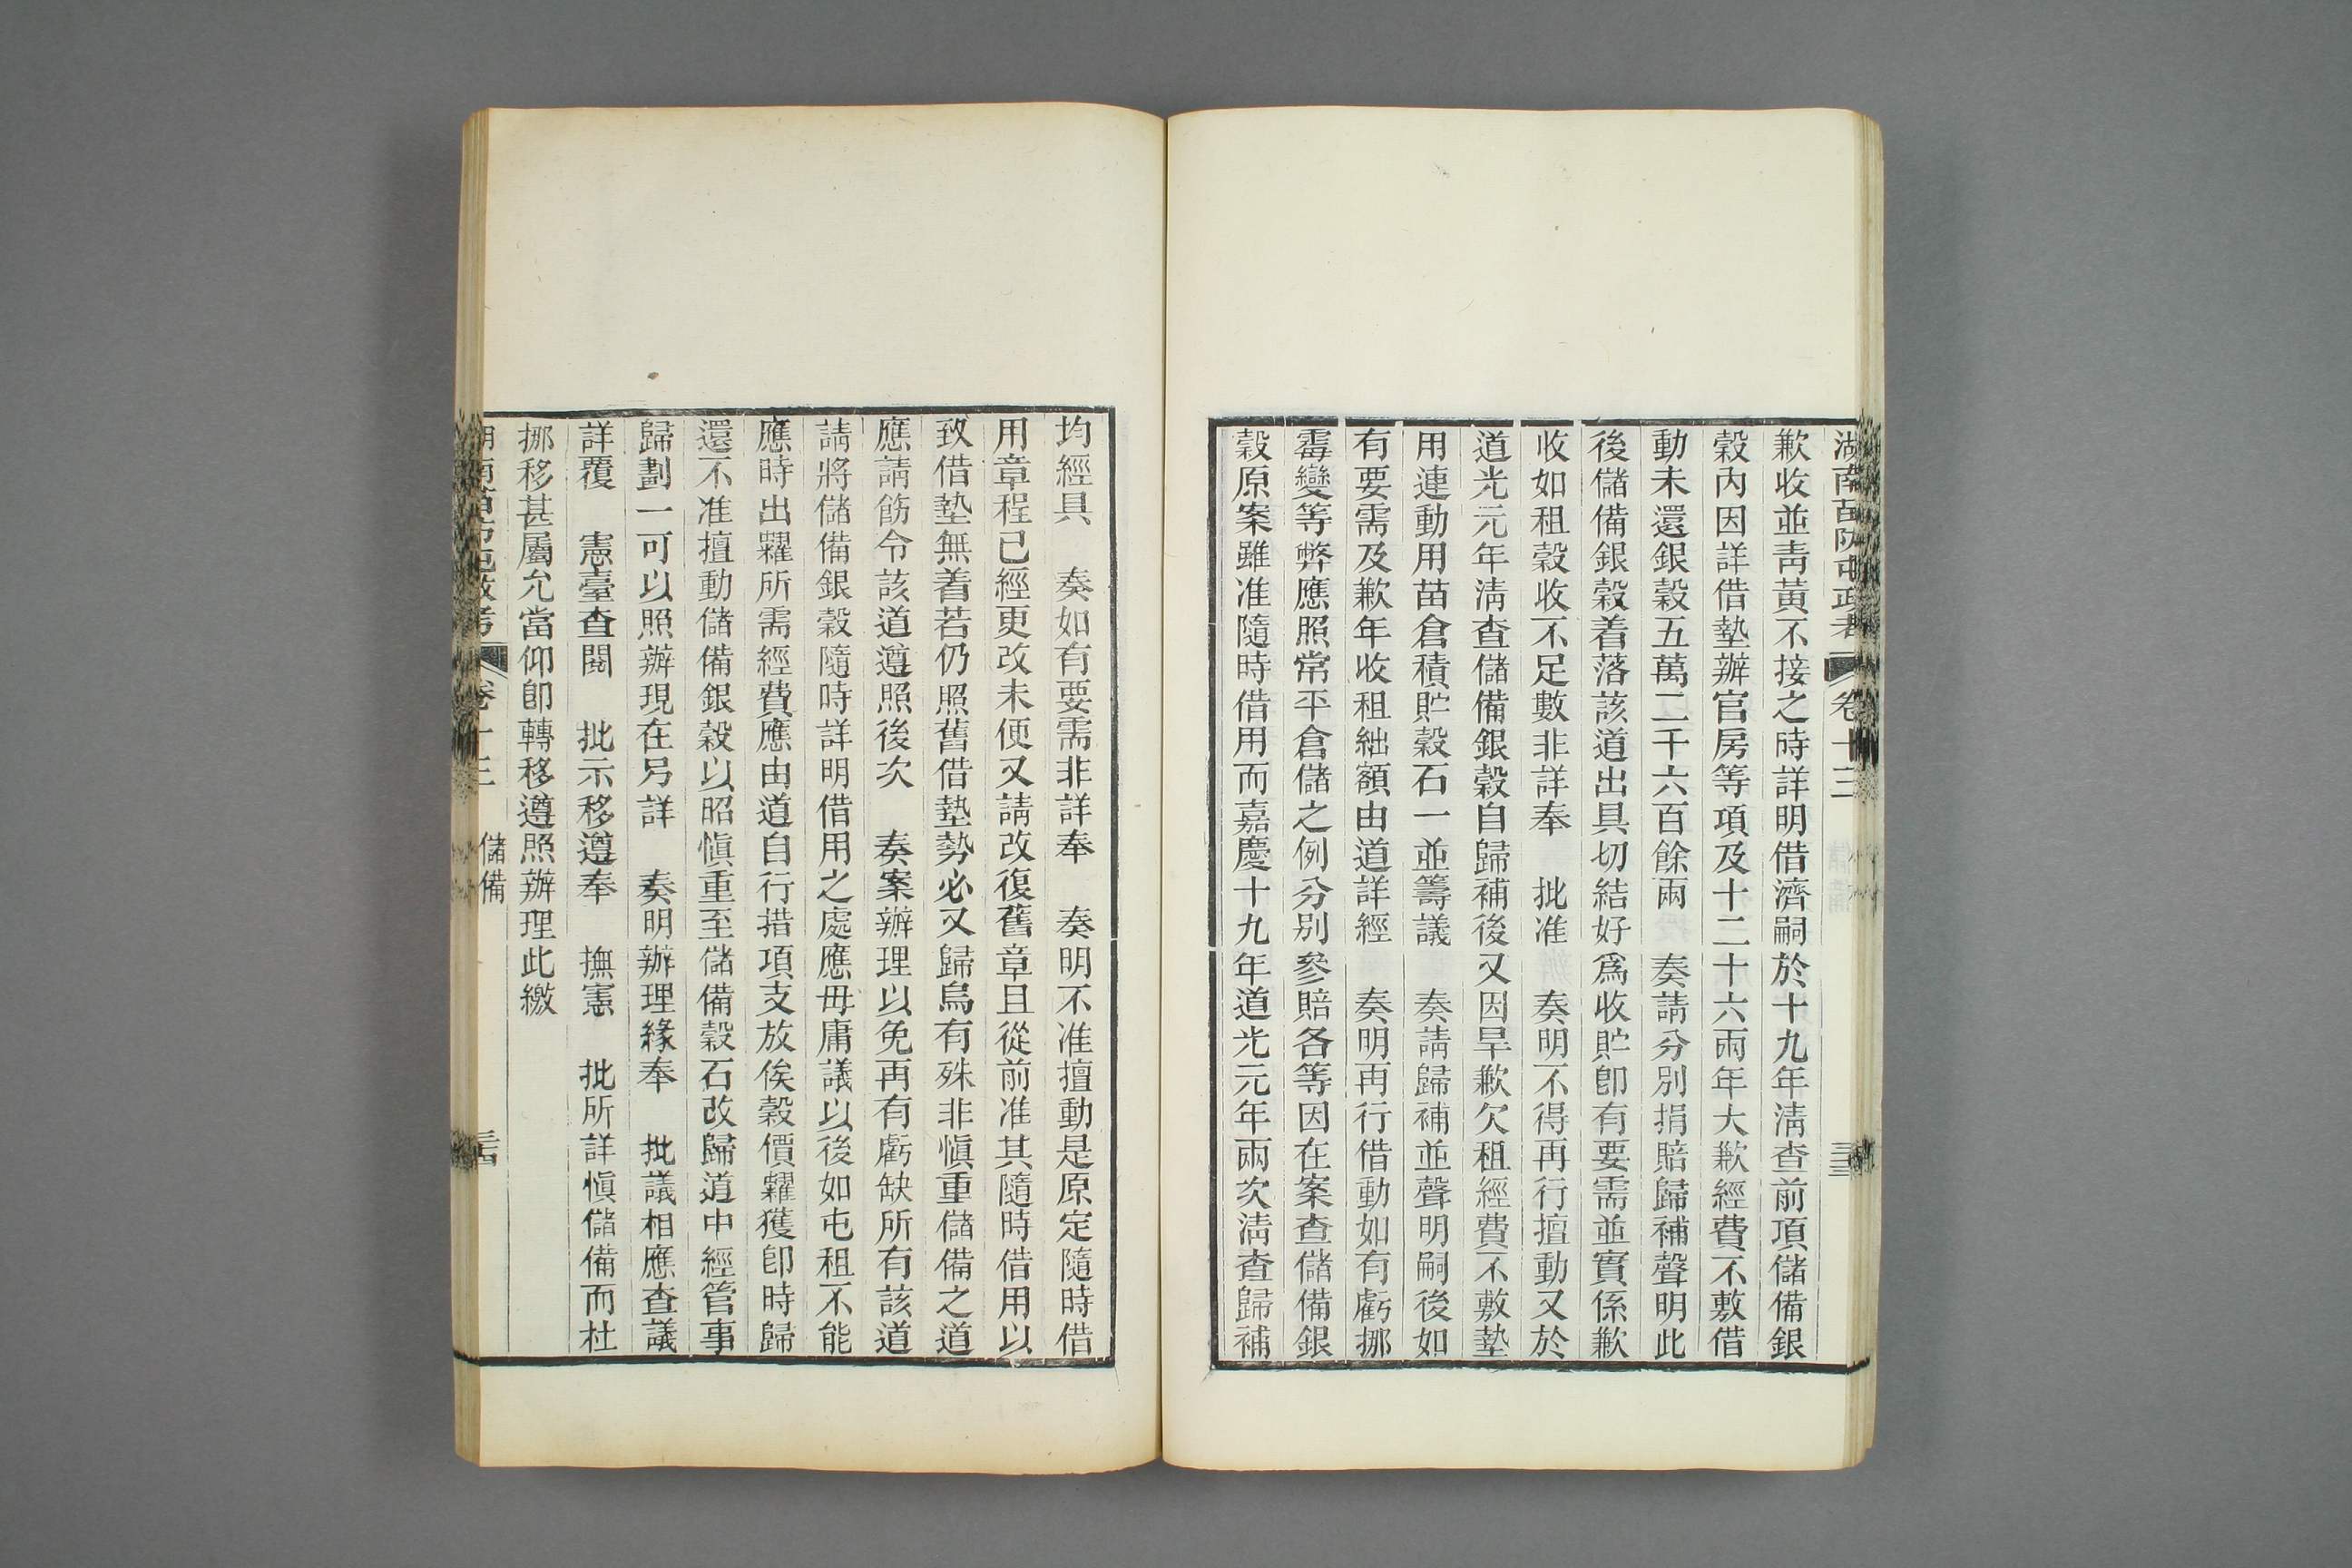 湖南苗防屯政考 卷十三 儲備 三三
歉收並靑黃不接之時詳明借濟嗣於十九年淸查前項儲備銀
穀內因詳借墊辦官房等項及十二十六兩年大歉經費不敷借
動未還銀穀五萬二千六百餘兩 奏請分別捐賠歸補聲明此
後儲備銀穀着落該道出具切結好爲收貯卽有要需並實係歉
收如租穀收不足數非詳奉 批准 奏明不得再行擅動又於
道光元年淸查儲備銀穀自歸補後又因旱歉欠租經費不敷墊
用連動用苗倉積貯穀石一並籌議 奏請歸補並聲明嗣後如
有要需及歉年收租絀額由道詳經 奏明再行借動如有虧挪
霉變等弊應照常平倉儲之例分別參賠各等因在案查儲備銀
穀原案雖准隨時借用而嘉慶十九年道光元年兩次淸查歸補
均經具 奏如有要需非詳奉 奏明不准擅動是原定隨時借
用章程已經更改未便又請改復舊章且從前准其隨時借用以
致借墊無着若仍照舊借墊勢必又歸烏有殊非愼重儲備之道
應請飭令該道遵照後次 奏案辦理以免再有虧缺所有該道
請將儲備銀穀隨時詳明借用之處應毋庸議以後如屯租不能
應時出糶所需經費應由道自行措項支放俟穀價糶獲卽時歸
還不准擅動儲備銀穀以昭愼重至儲備穀石改歸道中經管事
歸劃一可以照辦現在另詳 奏明辦理緣奉 批議相應查議
詳覆 憲臺查閱 批示移遵奉 撫憲 批所詳愼儲備而杜
挪移甚屬允當仰卽轉移遵照辦理此繳
湖南苗防屯政考 卷十三 儲備 三四